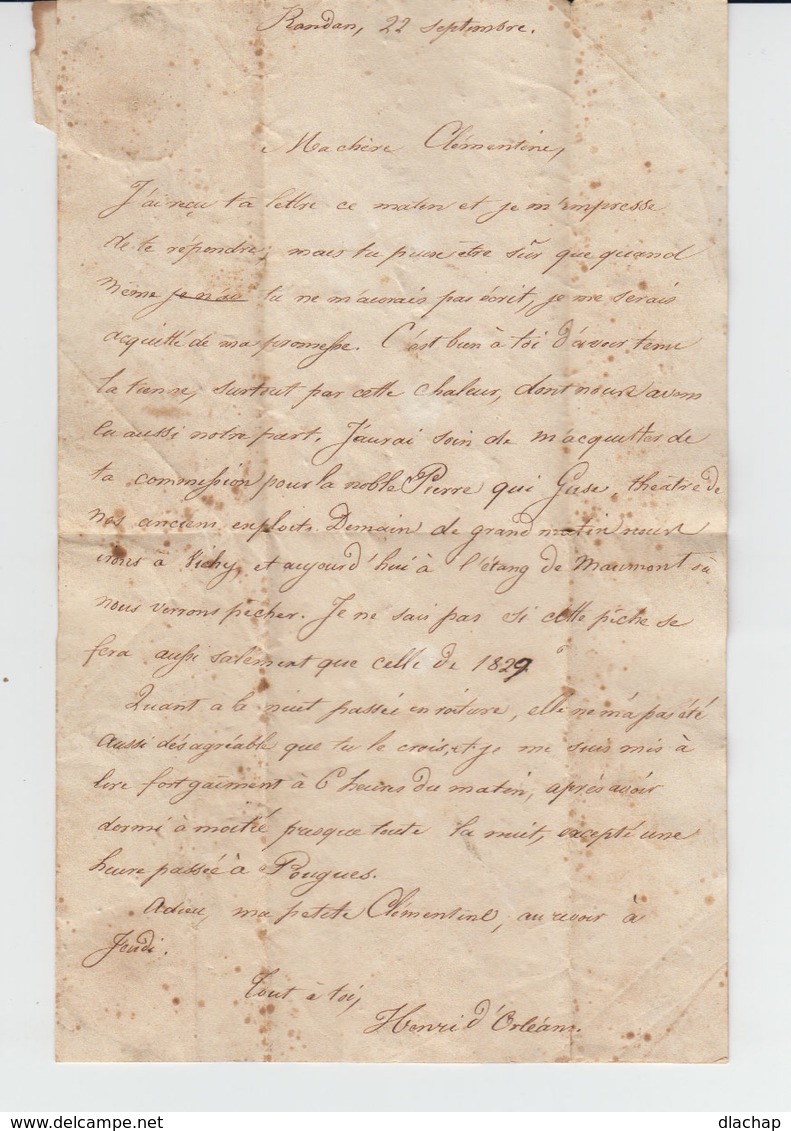 Randan, 22 septembre.
Ma chère Clémentine,
J'ai reçu ta lettre ce matin et je m'empresse
de te répondre; mais tu peux être sûr que quand
même je n'ai tu ne m'aurais pas écrit, je me serais
acquitté de ma promesse. C'est bien à toi d'avoir tenu
la tienne, surtout par cette chaleur, dont nous avons
eu aussi notre part. J'aurai soin de m'acquitter de
ta commission pour la noble Pierre qui Guse, théâtre de
nos anciens exploits. Demain de grand matin nous
irons à Vichy, et aujourd'hui à l'étang de Maumont où
nous verrons pêcher. Je ne sais pas si cette pêche se
fera aussi salement que celle de 1829
Quant à la nuit passée en voiture, elle ne m'a pas été
aussi désagréable que tu le crois, et je me suis mis à
lire fort gaîment à 6 heures du matin, après avoir
dormi à moitié presque toute la nuit, excepté une
heure passée à Pougues.
Adieu, ma petite Clémentine, au revoir à
Jeudi.
Tout à toi,
Henri d'Orléans.
delcampe.net
dlachap